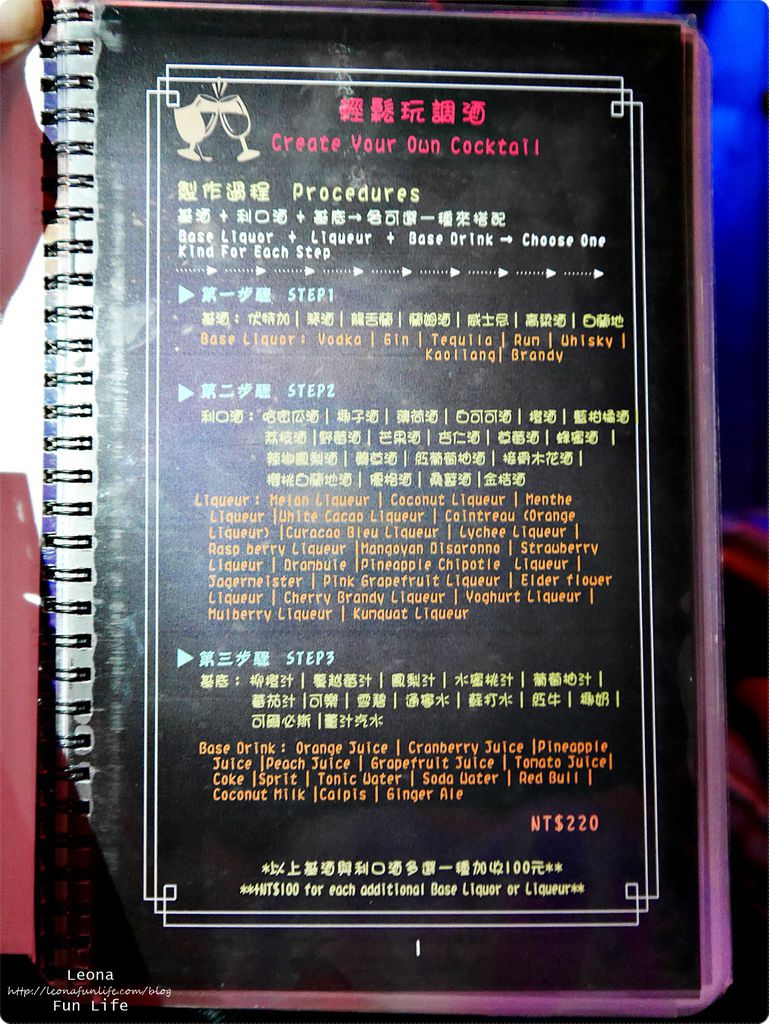 輕鬆玩調酒
Create Your Own Cocktail
製作過程 Procedures
基酒 + 利口酒 + 基底→各可選一種來搭配
Base Liquor + Liqueur + Base Drink → Choose One
Kind For Each Step
第一步驟 STEP1
基酒：伏特加 | 琴酒 | 龍舌蘭 | 蘭姆酒 | 威士忌 | 高粱酒 | 白蘭地
Base Liquor: Vodka | Gin | Tequila | Rum | Whisky |
Kaoliang| Brandy
第二步驟 STEP2
利口酒：哈密瓜酒 | 椰子酒 | 薄荷酒 | 白可可酒 | 橙酒 | 藍柑橘酒
荔枝酒 |野莓酒 | 芒果酒 | 杏仁酒 | 草莓酒 | 蜂蜜酒 |
辣椒鳳梨酒 | 藥草酒 | 紅葡萄柚酒 | 接骨木花酒 |
櫻桃白蘭地酒 | 優格酒 | 桑葚酒 |金桔酒
Liqueur: Melan Liqueur | Coconut Liqueur | Menthe
Liqueur |White Cacao Liqueur | Cointreau (Orange
Liqueur) |Curacao Bleu Liqueur | Lychee Liqueur |
Rasp berry Liqueur |Mangoyan Disaronno | Strawberry
Liqueur | Drambuie |Pineapple Chipotle Liqueur |
Jagermeister | Pink Grapefruit Liqueur | Elder flower
Liqueur | Cherry Brandy Liqueur | Yoghurt Liqueur |
Mulberry Liqueur | Kumquat Liqueur
第三步驟 STEP3
基底：柳橙汁 | 蔓越莓汁 | 鳳梨汁 | 水蜜桃汁 | 葡萄柚汁 |
蕃茄汁 |可樂 | 雪碧 | 通寧水 | 蘇打水 | 紅牛 | 椰奶 |
可爾必斯 |薑汁汽水
Base Drink: Orange Juice | Cranberry Juice |Pineapple
Juice |Peach Juice | Grapefruit Juice | Tomato Juice|
Coke |Sprit | Tonic Water | Soda Water | Red Bull |
Coconut Milk |Calpis | Ginger Ale
NT$220
*以上基酒與利口酒多選一種加收100元**
**+NT$100 for each additional Base Liquor or Liqueur**
1
Leona
http://leonafunlife.com/blog
Fun Life